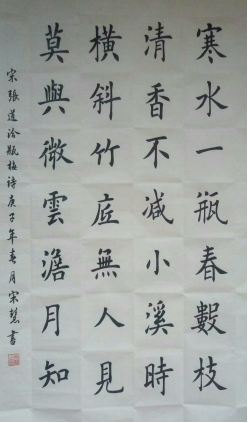 寒水一瓶春數枝
清香不減小溪時
橫斜竹底無人見
莫與微雲澹月知
宋張道洽瓶梅詩庚子年春月宋慧書